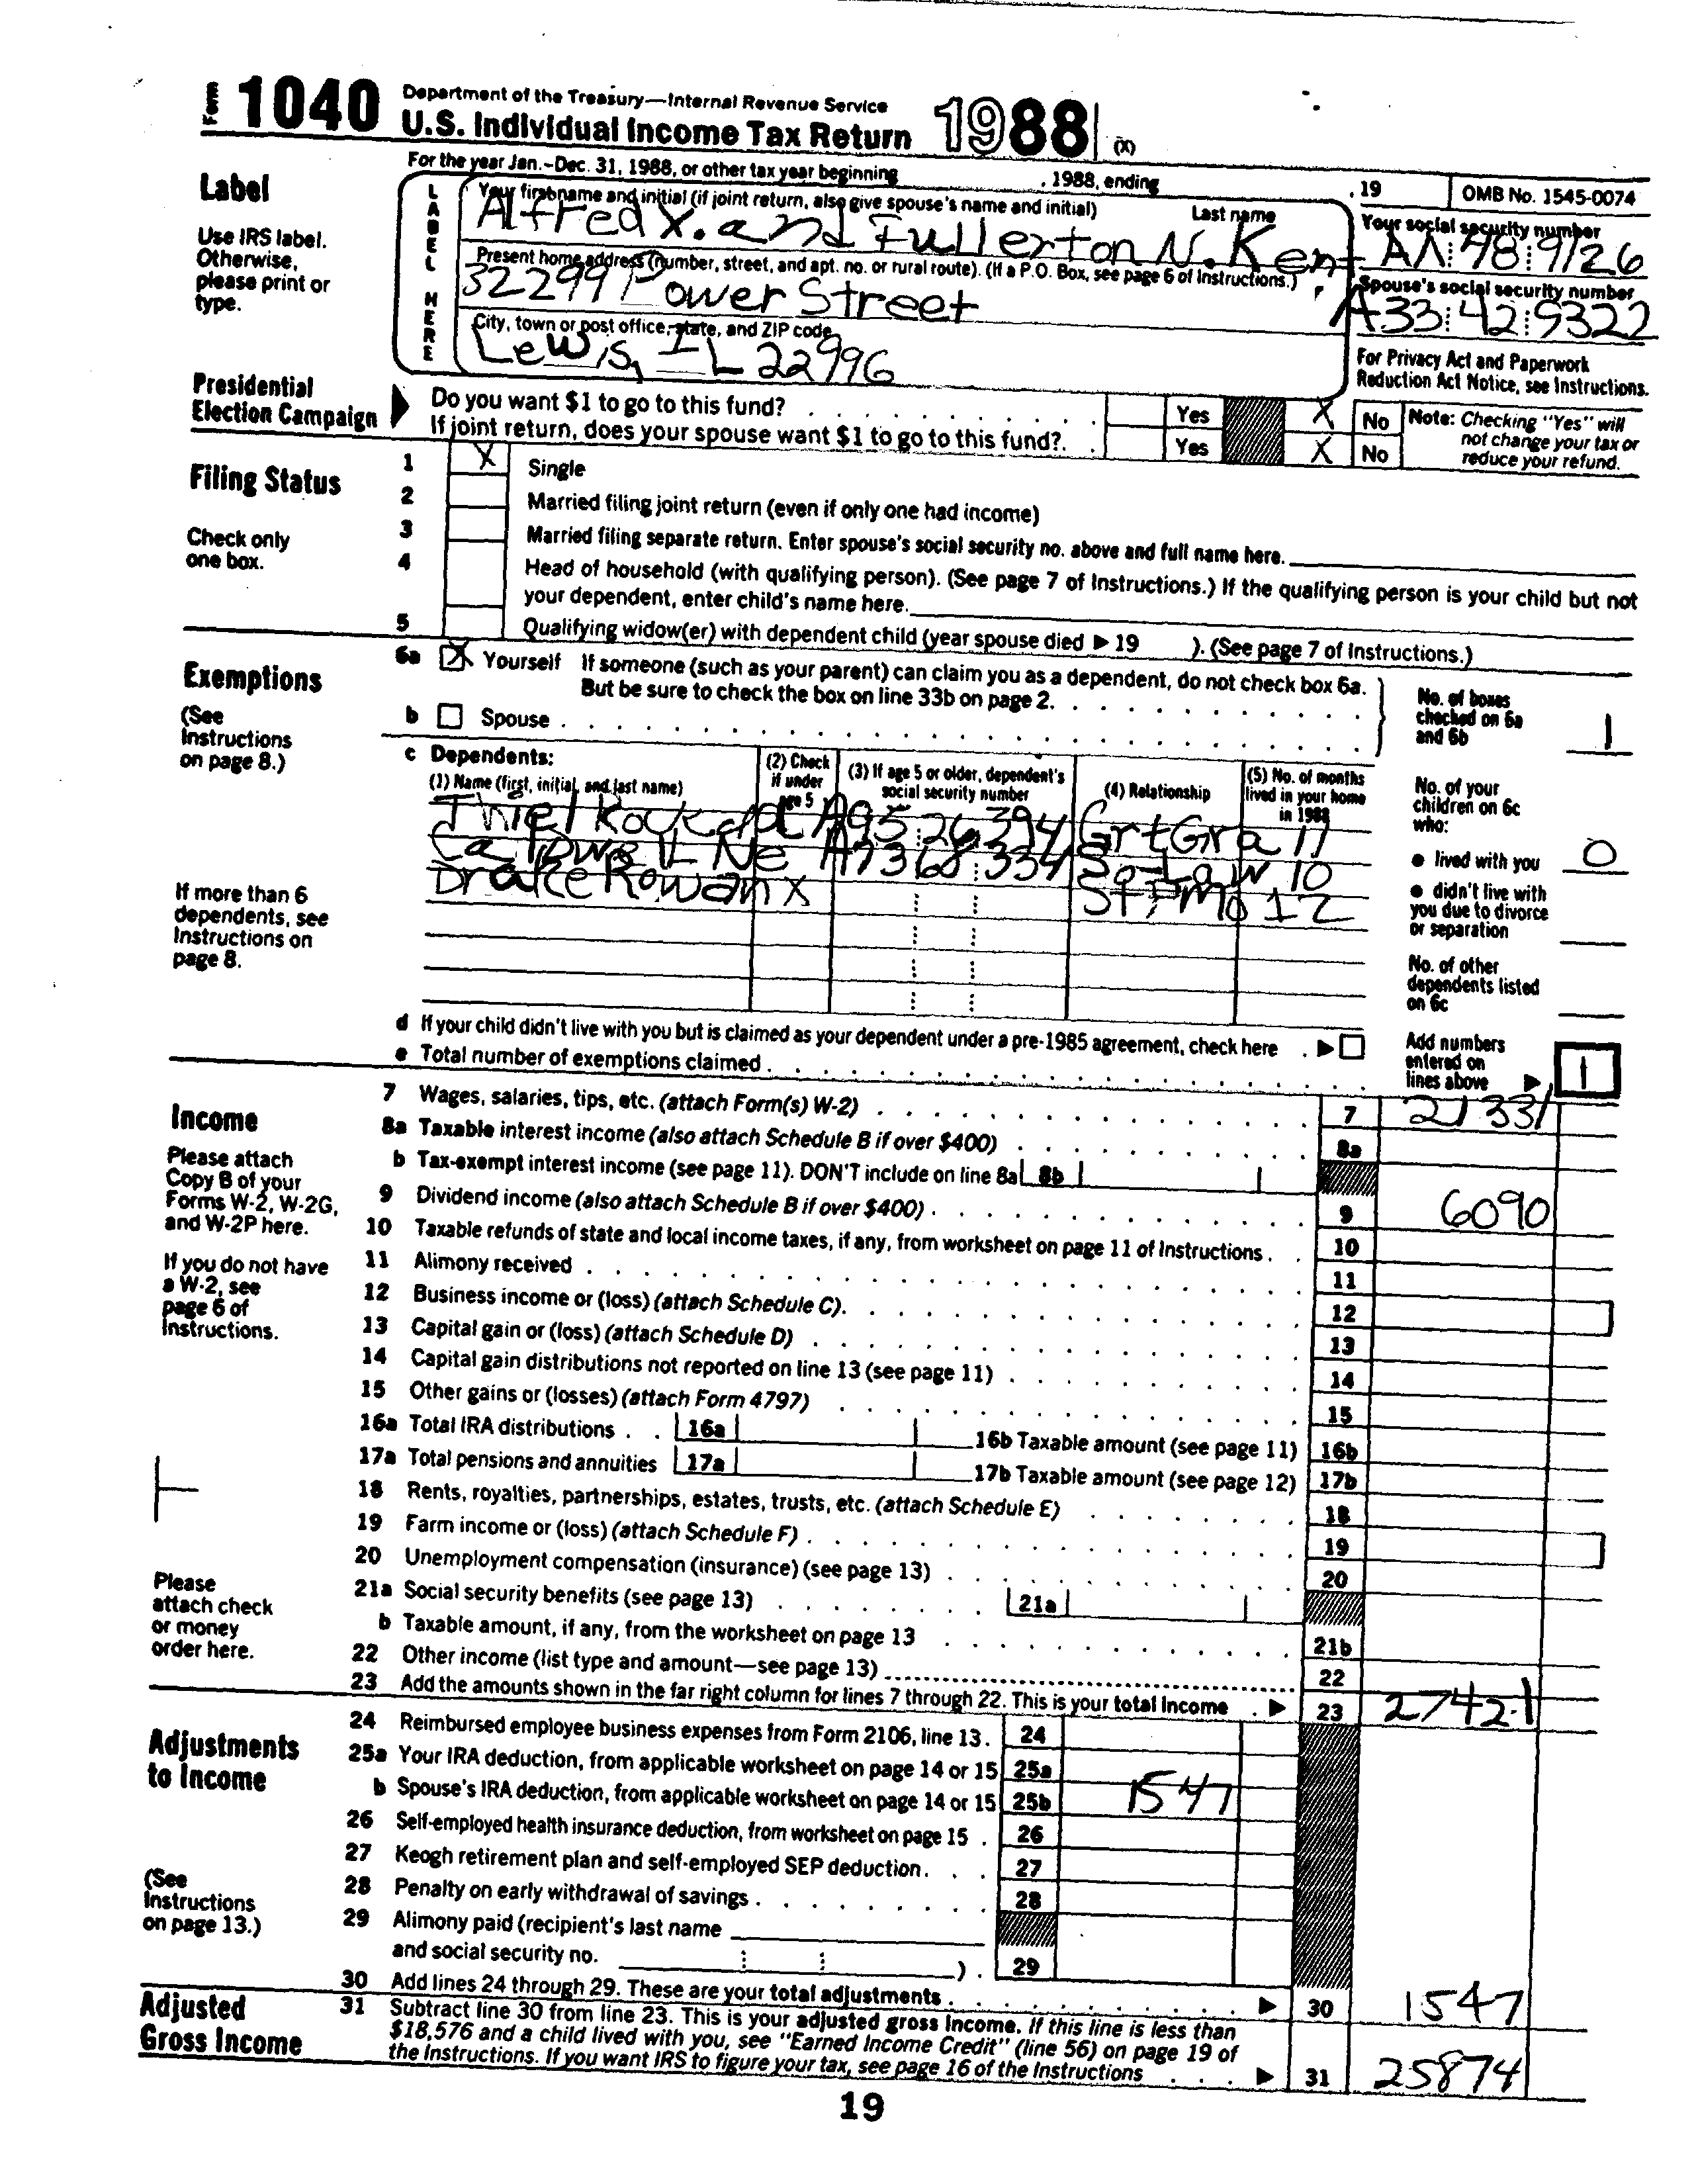 Form 1040 Department of the Treasury—Internal Revenue Service
U.S. Individual Income Tax Return 1988 (X)
For the year Jan.–Dec. 31, 1988, or other tax year beginning , 1988, ending , 19 OMB No. 1545-0074
Label
Use IRS label.
Otherwise,
please print or
type.
LABEL HERE
Your first name and initial (if joint return, also give spouse's name and initial) Last name
Alfred X. and Fullerton N. Kent
Your social security number
AA 48 9126
Present home address (number, street, and apt. no. or rural route). (If a P.O. Box, see page 6 of Instructions.)
32299 Power Street
Spouse's social security number
A33 42 9322
City, town or post office, state, and ZIP code
Lewis, IL 22996
For Privacy Act and Paperwork
Reduction Act Notice, see Instructions.
Presidential
Election Campaign
Do you want $1 to go to this fund? Yes X No
If joint return, does your spouse want $1 to go to this fund? Yes X No
Note: Checking "Yes" will
not change your tax or
reduce your refund.
Filing Status
Check only
one box.
1 X Single
2 Married filing joint return (even if only one had income)
3 Married filing separate return. Enter spouse's social security no. above and full name here.
4 Head of household (with qualifying person). (See page 7 of Instructions.) If the qualifying person is your child but not
your dependent, enter child's name here.
5 Qualifying widow(er) with dependent child (year spouse died ▶ 19 ). (See page 7 of Instructions.)
Exemptions
(See
Instructions
on page 8.)
6a X Yourself If someone (such as your parent) can claim you as a dependent, do not check box 6a.
But be sure to check the box on line 33b on page 2.
b Spouse
No. of boxes
checked on 6a
and 6b 1
c Dependents:
(1) Name (first, initial, and last name)
(2) Check
if under
age 5
(3) If age 5 or older, dependent's
social security number
(4) Relationship
(5) No. of months
lived in your home
in 1988
Thiel A95 26 394 GrtGra 11
Ne A73 68 334 So-Law 10
Drake Rowan X StpMo 12
If more than 6
dependents, see
Instructions on
page 8.
No. of your
children on 6c
who:
● lived with you 0
● didn't live with
you due to divorce
or separation
No. of other
dependents listed
on 6c
d If your child didn't live with you but is claimed as your dependent under a pre-1985 agreement, check here ▶
e Total number of exemptions claimed
Add numbers
entered on
lines above ▶ 1
Income
Please attach
Copy B of your
Forms W-2, W-2G,
and W-2P here.
If you do not have
a W-2, see
page 6 of
Instructions.
Please
attach check
or money
order here.
7 Wages, salaries, tips, etc. (attach Form(s) W-2) 7 21331
8a Taxable interest income (also attach Schedule B if over $400) 8a
b Tax-exempt interest income (see page 11). DON'T include on line 8a 8b
9 Dividend income (also attach Schedule B if over $400) 9 6090
10 Taxable refunds of state and local income taxes, if any, from worksheet on page 11 of Instructions 10
11 Alimony received 11
12 Business income or (loss) (attach Schedule C) 12
13 Capital gain or (loss) (attach Schedule D) 13
14 Capital gain distributions not reported on line 13 (see page 11) 14
15 Other gains or (losses) (attach Form 4797) 15
16a Total IRA distributions 16a 16b Taxable amount (see page 11) 16b
17a Total pensions and annuities 17a 17b Taxable amount (see page 12) 17b
18 Rents, royalties, partnerships, estates, trusts, etc. (attach Schedule E) 18
19 Farm income or (loss) (attach Schedule F) 19
20 Unemployment compensation (insurance) (see page 13) 20
21a Social security benefits (see page 13) 21a
b Taxable amount, if any, from the worksheet on page 13 21b
22 Other income (list type and amount—see page 13) 22
23 Add the amounts shown in the far right column for lines 7 through 22. This is your total income ▶ 23 27421
Adjustments
to Income
(See
Instructions
on page 13.)
24 Reimbursed employee business expenses from Form 2106, line 13. 24
25a Your IRA deduction, from applicable worksheet on page 14 or 15 25a
b Spouse's IRA deduction, from applicable worksheet on page 14 or 15 25b 1547
26 Self-employed health insurance deduction, from worksheet on page 15 26
27 Keogh retirement plan and self-employed SEP deduction 27
28 Penalty on early withdrawal of savings 28
29 Alimony paid (recipient's last name
and social security no. ) 29
30 Add lines 24 through 29. These are your total adjustments ▶ 30 1547
Adjusted
Gross Income
31 Subtract line 30 from line 23. This is your adjusted gross income. If this line is less than
$18,576 and a child lived with you, see "Earned Income Credit" (line 56) on page 19 of
the Instructions. If you want IRS to figure your tax, see page 16 of the Instructions ▶ 31 25874
19